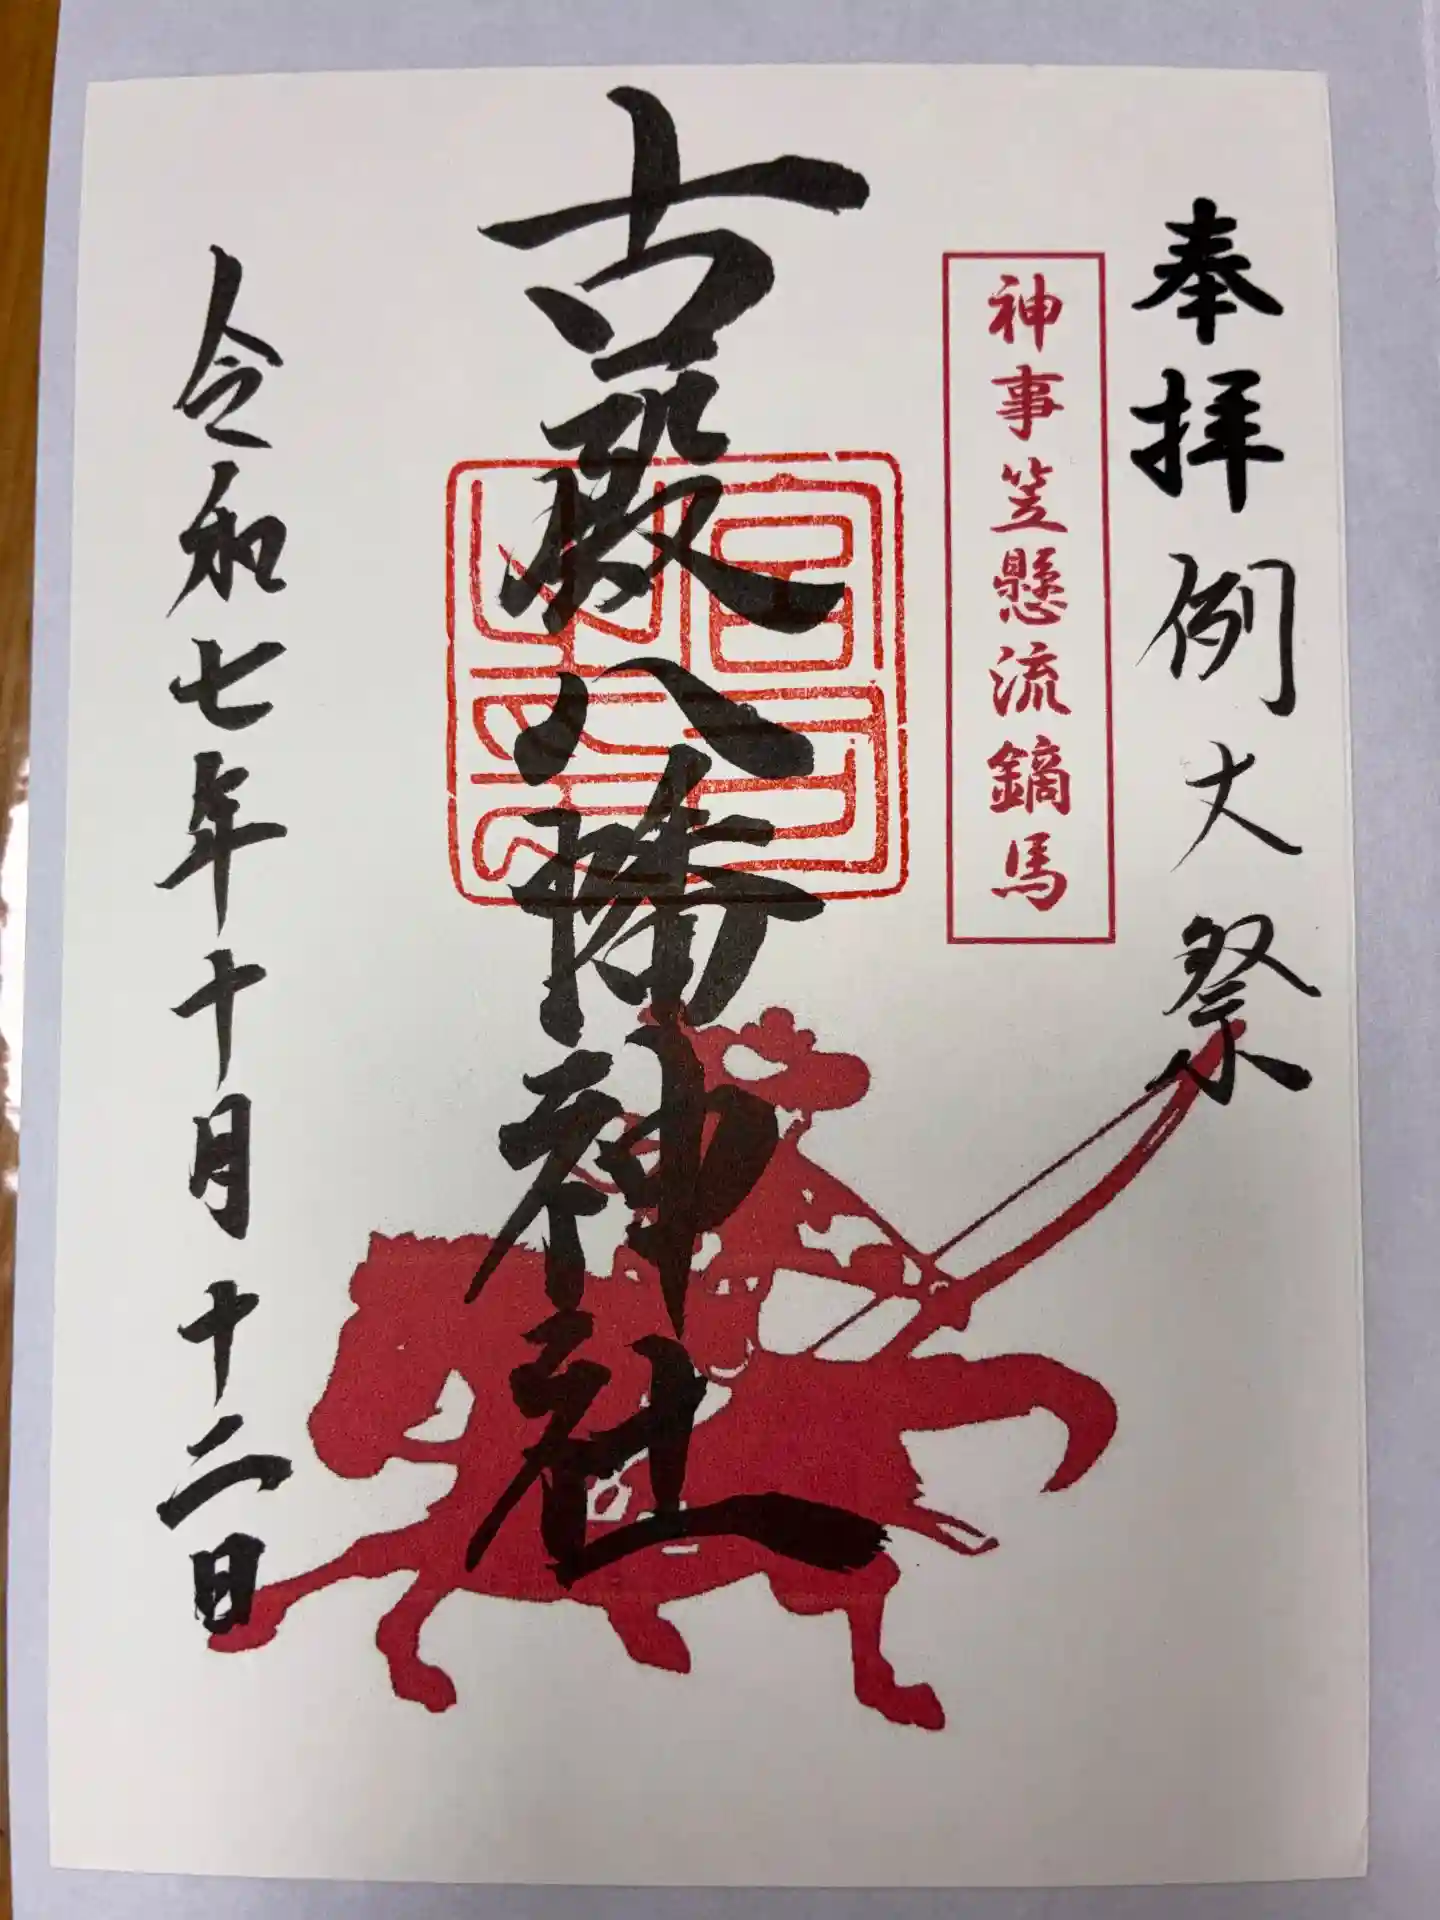 奉拝 例大祭
神事笠懸流鏑馬
古殿八幡神社
令和七年十月十二日